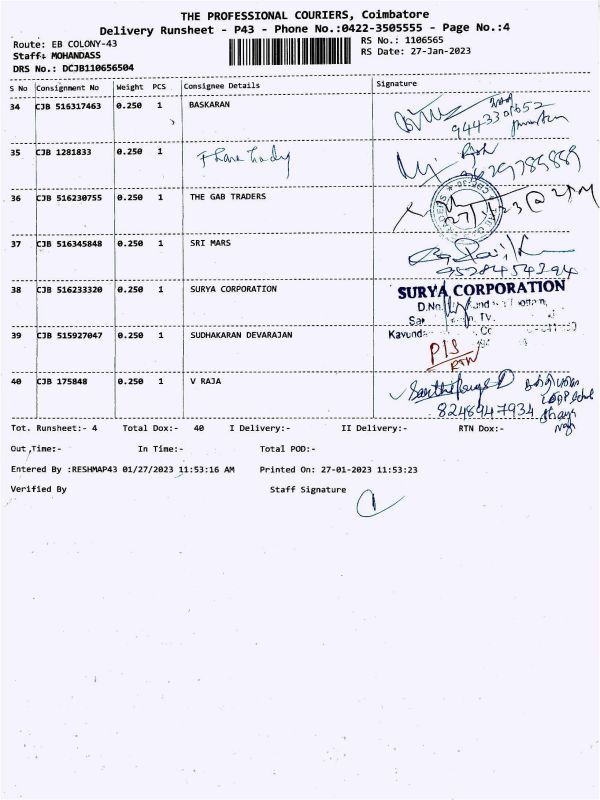 THE PROFESSIONAL COURIERS, Coimbatore
Delivery Runsheet - P43 - Phone No.:0422-3505555 - Page No.:4
Route: EB COLONY-43
RS No.: 1106565
Staff: MOHANDASS
RS Date: 27-Jan-2023
DRS No.: DCJB110656504
S No Consignment No Weight PCS Consignee Details Signature
34 CJB 516317463 0.250 1 BASKARAN
9443301652
35 CJB 1281833 0.250 1
36 CJB 516230755 0.250 1 THE GAB TRADERS
37 CJB 516345848 0.250 1 SRI MARS
9528454394
38 CJB 516233320 0.250 1 SURYA CORPORATION SURYA CORPORATION
D.No
39 CJB 515927047 0.250 1 SUDHAKARAN DEVARAJAN
P/S
RTN
40 CJB 175848 0.250 1 V RAJA
8248947934
Tot. Runsheet:- 4 Total Dox:- 40 I Delivery:- II Delivery:- RTN Dox:-
Out Time:- In Time:- Total POD:-
Entered By :RESHMAP43 01/27/2023 11:53:16 AM Printed On: 27-01-2023 11:53:23
Verified By Staff Signature